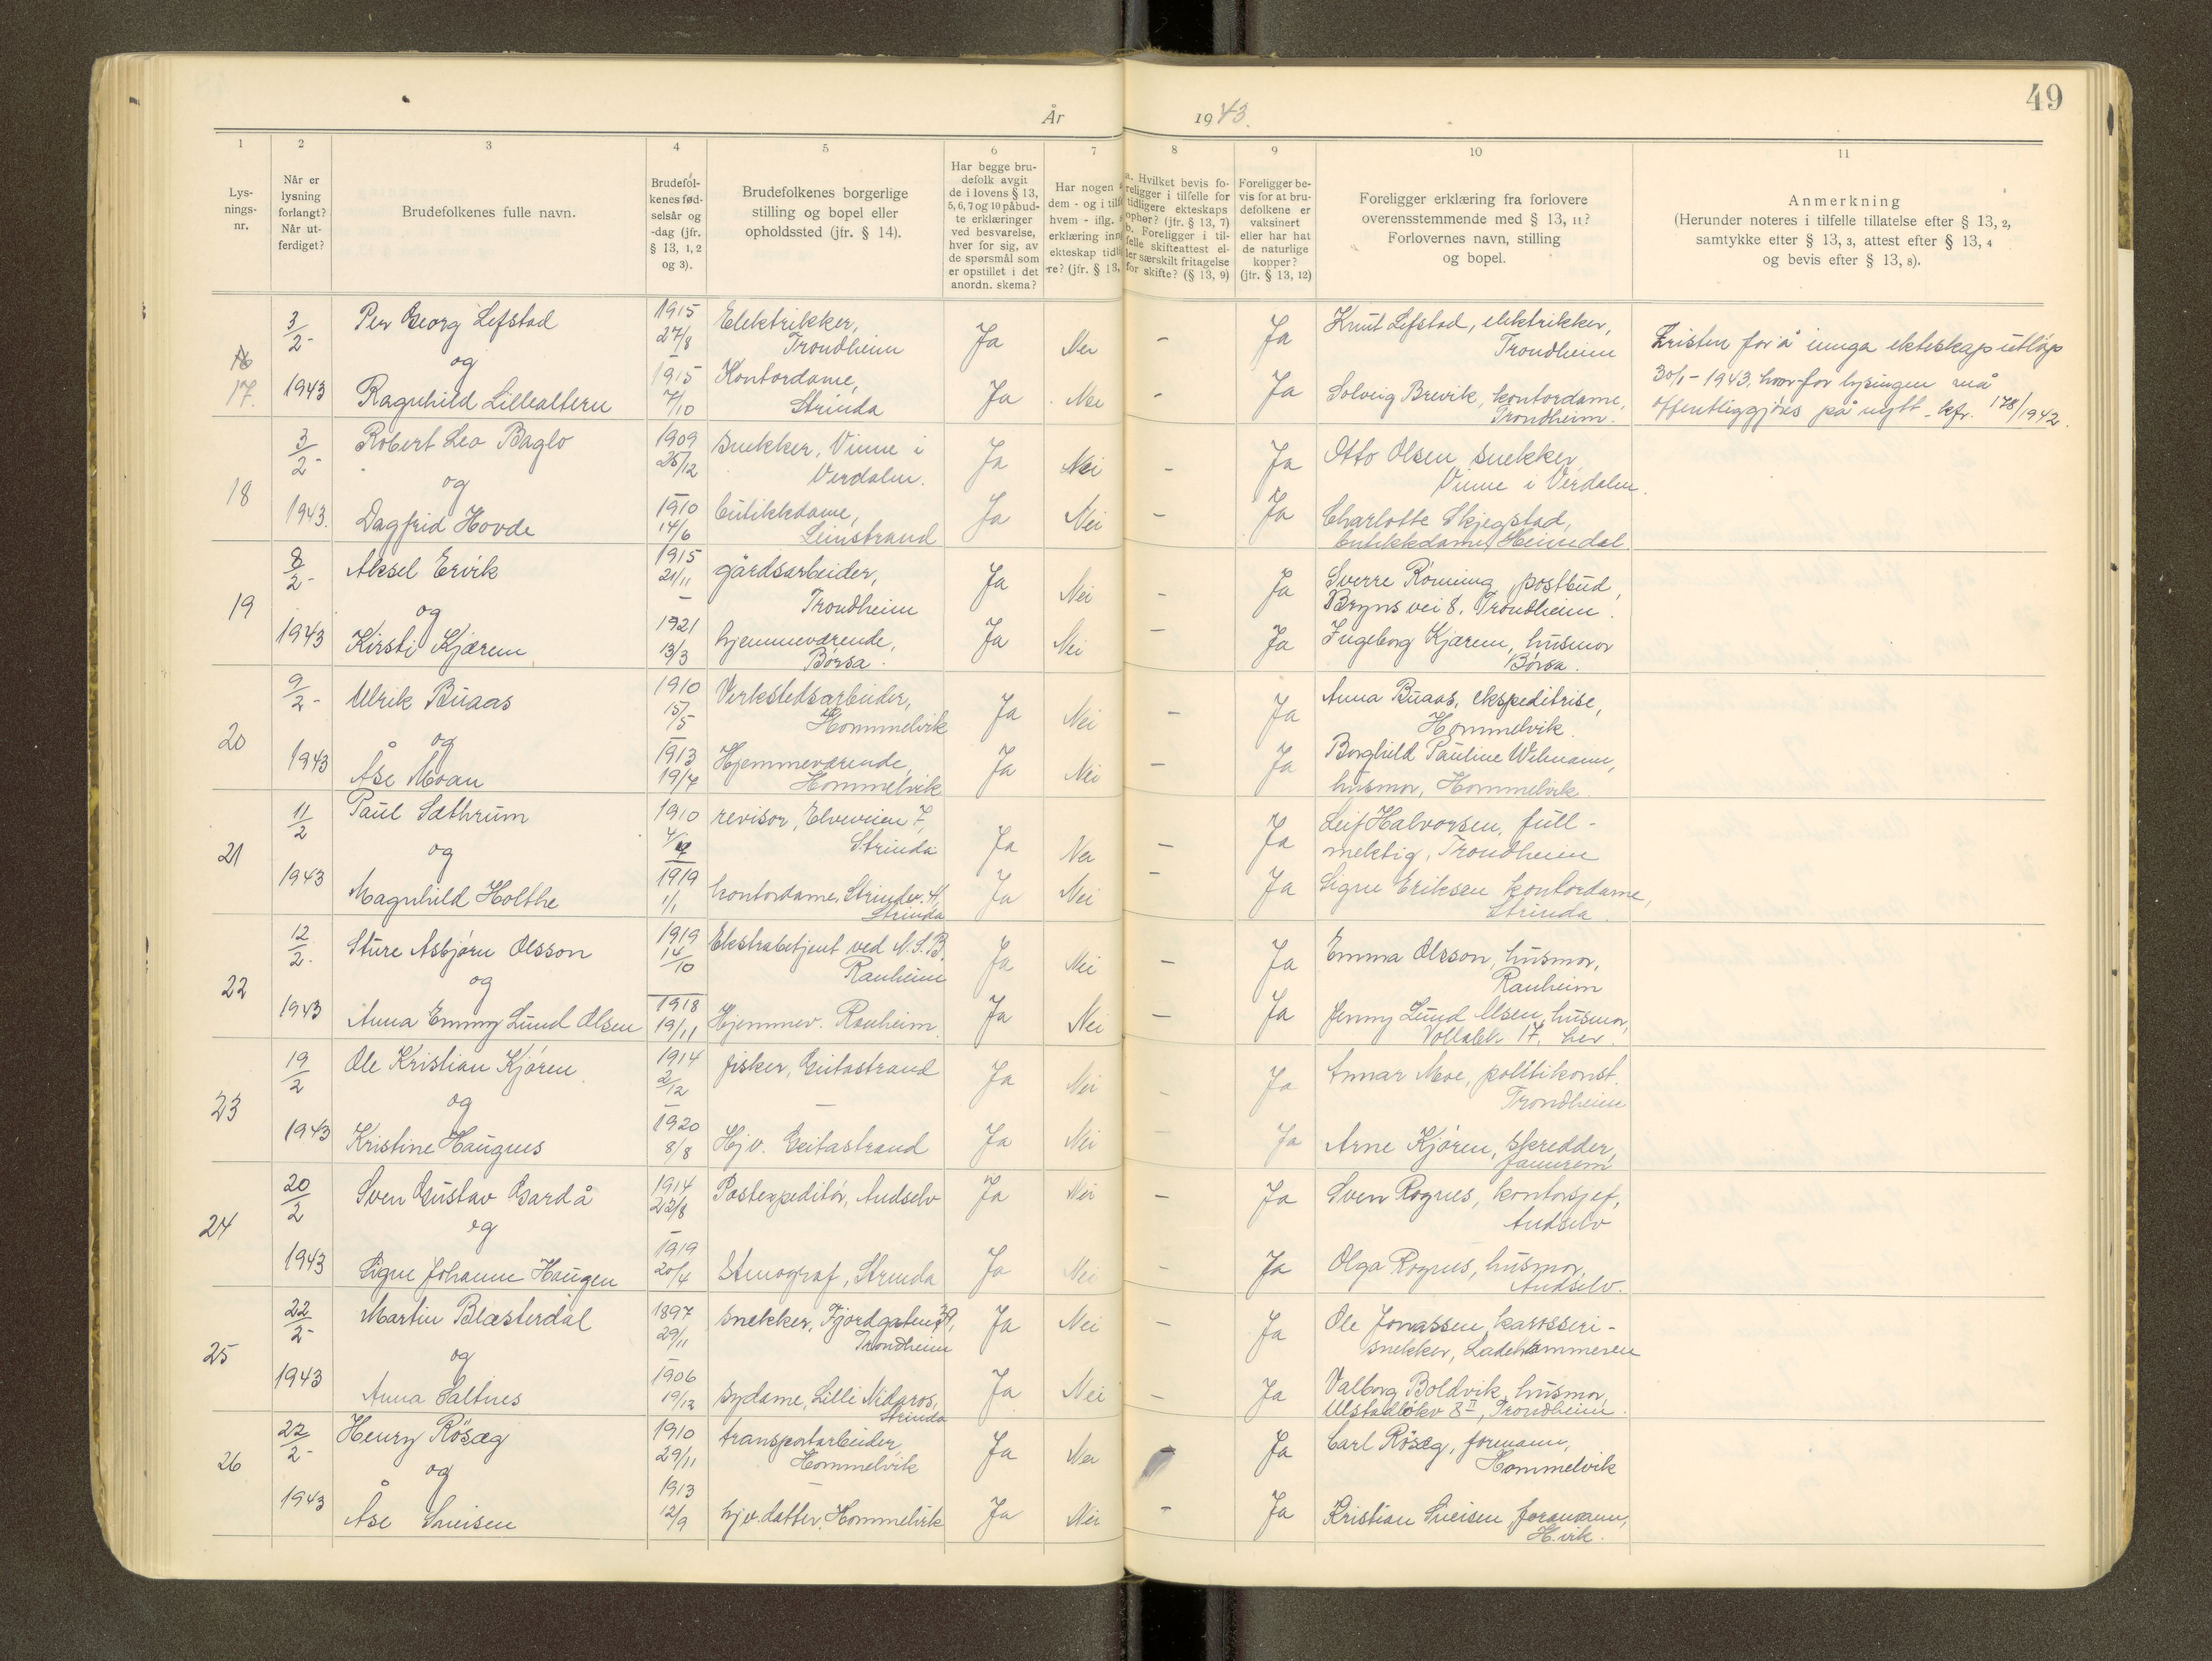 49
År 1943.
1 2 3 4 5 6 7 8 9 10 11
Lys-
nings-
nr.
Når er
lysning
forlangt?
Når ut-
ferdiget?
Brudefolkenes fulle navn.
Brudefol-
kenes fød-
selsår og
-dag (jfr.
§ 13, 1, 2
og 3).
Brudefolkenes borgerlige
stilling og bopel eller
opholdssted (jfr. § 14).
Har begge bru-
defolk avgit
de i lovens § 13,
5, 6, 7 og 10 påbud-
te erklæringer
ved besvarelse,
hver for sig, av
de spørsmål som
er opstillet i det
anordn. skema?
Har nogen
dem - og i tilf
hvem - iflg.
erklæring inn
ekteskap tidl
re? (jfr. § 13,
a. Hvilket bevis fo-
religger i tilfelle for
tidligere ekteskaps
ophør? (jfr. § 13, 7)
b. Foreligger i til-
felle skifteattest el-
ler særskilt fritagelse
for skifte? (§ 13, 9)
Foreligger be-
vis for at bru-
defolkene er
vaksinert
eller har hat
de naturlige
kopper?
(jfr. § 13, 12)
Foreligger erklæring fra forlovere
overensstemmende med § 13, 11?
Forlovernes navn, stilling
og bopel.
Anmerkning
(Herunder noteres i tilfelle tillatelse efter § 13, 2,
samtykke efter § 13, 3, attest efter § 13, 4
og bevis efter § 13, 8).
17. 3/2- 1943
Per Georg Lefstad
og
Ragnhild Lillealtern
1915
27/8
1915
7/10
Elektrikker,
Trondheim
Kontordame,
Strinda
Ja Nei - Ja
Ja Nei - Ja
Knut Lefstad, elektrikker,
Trondheim
Solveig Brevik, kontordame,
Trondheim.
Fristen for å innga ekteskap utløp
30/1-1943, hvorfor lysingen må
offentliggjøres på nytt - kfr. 178/1942.
18 3/2- 1943.
Robert Leo Baglo
og
Dagfrid Hovde
1909
25/12
1910
14/6
Snekker, Vinne i
Verdalen.
Butikkdame,
Leinstrand
Ja Nei - Ja
Ja Nei - Ja
Otto Olsen snekker
Vinne i Verdalen.
Charlotte Skjegstad,
butikkdame, Heimdal.
19 8/2- 1943
Aksel Ervik
og
Kirsti Kjærem
1915
21/11
1921
13/3
gårdsarbeider,
Trondheim
hjemmeværende,
Børsa.
Ja Nei - Ja
Ja Nei - Ja
Sverre Rønning, postbud,
Bryns vei 8. Trondheim.
Ingeborg Kjærem, husmor
Børsa.
20 9/2- 1943
Ulrik Buaas
og
Åse Moan
1910
15/5
1913
19/7
Verkstedsarbeider,
Hommelvik
Hjemmeværende,
Hommelvik
Ja Nei - Ja
Ja Nei - Ja
Anna Buaas, ekspeditrise,
Hommelvik.
Borghild Pauline Wilmann,
husmor, Hommelvik.
21 11/2 1943
Paul Sæthrum
og
Magnhild Holthe
1910
1919
1/1
revisor, Elveveien 7,
Strinda
kontordame, Strindv. 41,
Strinda
Ja Nei - Ja
Ja Nei - Ja
Leif Halvorsen, full-
mektig, Trondheim
Signe Eriksen kontordame,
Strinda.
22 12/2. 1943
Sture Asbjørn Olsson
og
Anna Emmy Lund Olsen
1919
14/10
1918
19/11
Ekstrabetjent ved N.S.B.
Ranheim
Hjemmev. Ranheim.
Ja Nei - Ja
Ja Nei - Ja
Emma Olsson, husmor,
Ranheim
Jenny Lund Olsen, husmor,
Vollabk. 17. her.
23 19/2 1943
Ole Kristian Kjøren
og
Kristine Haugnes
1914
2/12
1920
8/8
fisker, Geitastrand
Hjv. Geitastrand
Ja Nei - Ja
Ja Nei - Ja
Annar Moe, politikonst.
Trondheim
Arne Kjøren, skredder,
Fannrem
24 20/2 1943
Sven Gustav Gardå
og
Signe Johanne Haugen
1914
22/8
1919
20/4
Postexpeditør, Andselv
Stenograf, Strinda
Ja Nei - Ja
Ja Nei - Ja
Sven Rognes, kontorsjef,
Andselv
Olga Rognes, husmor,
Andselv.
25 22/2- 1943
Martin Blæsterdal
og
Anna Saltnes
1897
29/11
1906
19/12
Snekker, Fjordgaten 39,
Trondheim
Sydame, Lilli Nidaros,
Strinda
Ja Nei - Ja
Ja Nei - Ja
Ole Jonassen, karosseri-
snekker, Ladehammeren
Valborg Boldvik, husmor,
Ulstadløkv 8 II, Trondheim.
26 22/2- 1943
Henry Røsæg
og
Åse Sneisen
1910
29/11
1913
12/9
transportarbeider,
Hommelvik
hjv. datter, Hommelvik
Ja Nei Ja
Ja Nei - Ja
Carl Røsæg, formann,
Hommelvik
Kristian Sneisen formann,
H.vik.